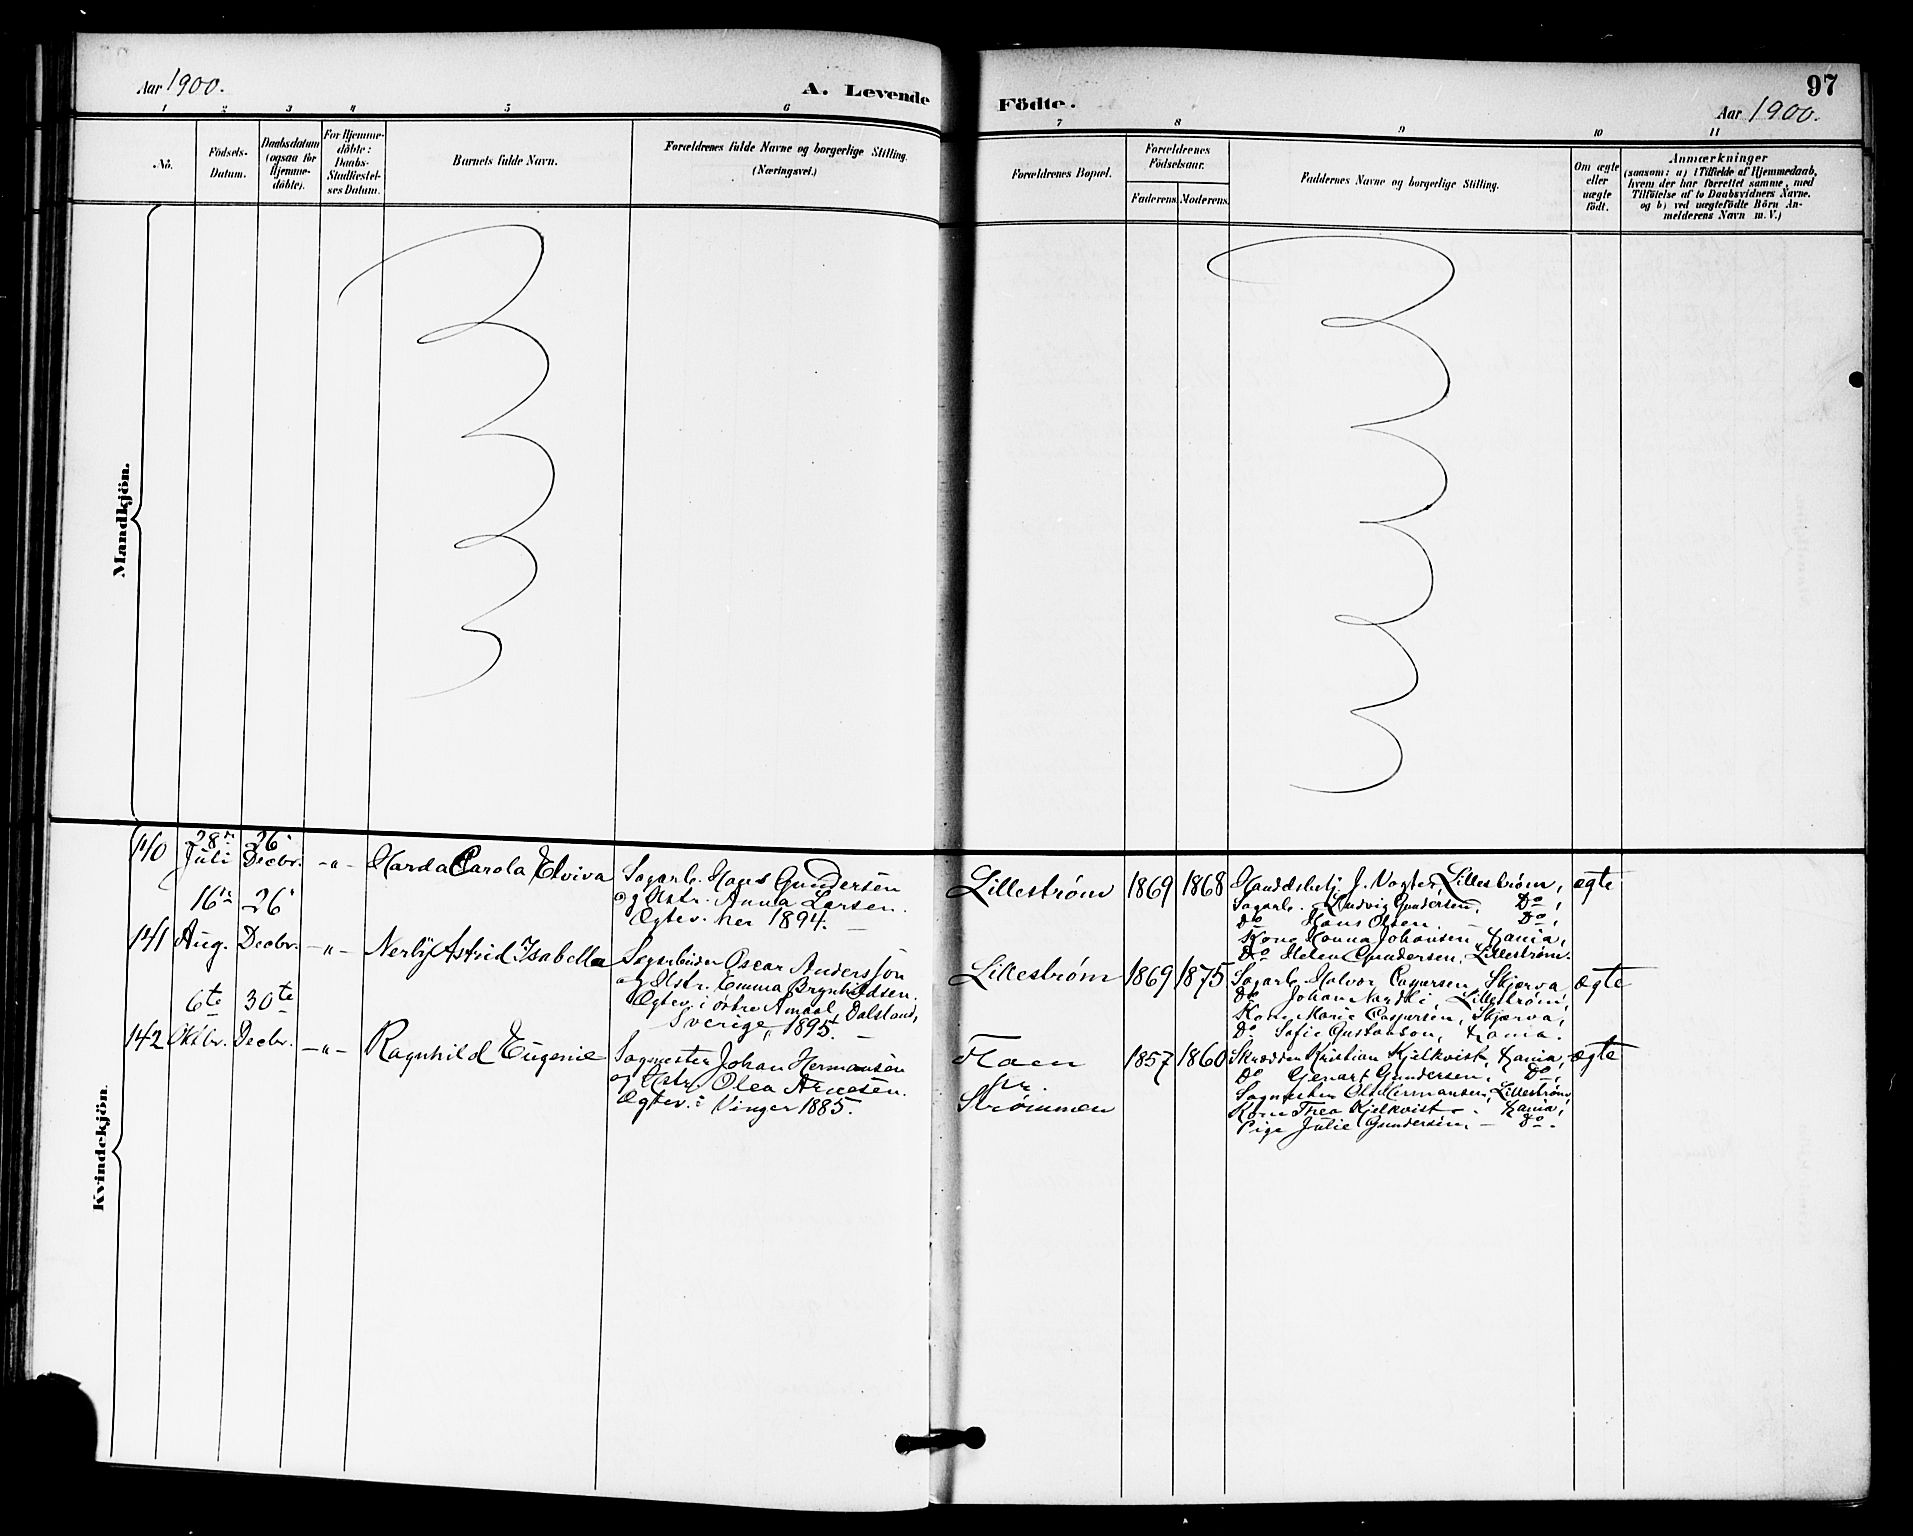 Aar 1900.
A. Levende
Födte.
97
Aar 1900.
1 2 3 4 5 6 7 8 9 10 11
No.
Födsels-
Datum.
Daabsdatum
(ogsaa for
Hjemme-
döbte).
For Hjemme-
döbte:
Daabs-
Stadfæstel-
ses Datum.
Barnets fulde Navn.
Forældrenes fulde Navne og borgerlige Stilling.
(Næringsvei.)
Forældrenes Bopæl.
Forældrenes
Födselsaar.
Faderens.
Moderens.
Faddernes Navne og borgerlige Stilling.
Om ægte
eller
uægte
födt.
Anmærkninger
(saasom: a) i Tilfælde af Hjemmedaab,
hvem der har forrettet samme, med
Tilföielse af to Daabsvidners Navne.
og b) ved uægtefödte Börn An-
melderens Navn m. V.)
Mandkjön.
Kvindekjön.
140
28de
Juli
26.
Decbr.
-"-
Harda Carola Elvira
Sagarb. Hans Gundersen
og Hstr. Anna Larsen.
Ægtev. her 1894. —
Lillestrøm
1869
1868
J. Vogter, Lillestrøm,
Sagarb. Ludvig Gundersen, Do,
Do Hans Olsen Do,
Kone Hanna Johansen, Xania,
Do Helen Gundersen, Lillestrøm.
ægte
141
16de
Aug.
26.
Decbr.
-"-
Nerly Astrid Isabella
Sagarbeider Oscar Andersson
og Hstr. Emma Brynhildsen.
Ægtev. i Amaal, Dalsland,
Sverige, 1895. —
Lillestrøm
1869
1875
Sagarb. Halvor Caspersen, Skjærva
Do Johan Lillestrøm,
Kone Marie Caspersen, Skjærva,
Do Sofie Gustavson, Xania.
ægte
142
6te
Oktbr.
30te
Decbr.
-"-
Ragnhild Eugenie
Sagmester Johan Hermansen
og Hstr. Olea Arnesen.
Ægtev. i Vinger 1885.
Flaen
pr.
Strømmen
1857
1860
Skrædder Kristian Kjelkvist, Xania,
Do Gerhart Gundersen, Do,
Sagmester Ole Hermansen, Lillestrøm,
Kone Thea Kjelkvist — Xania,
Pige Julie Gundersen, — Do.
ægte